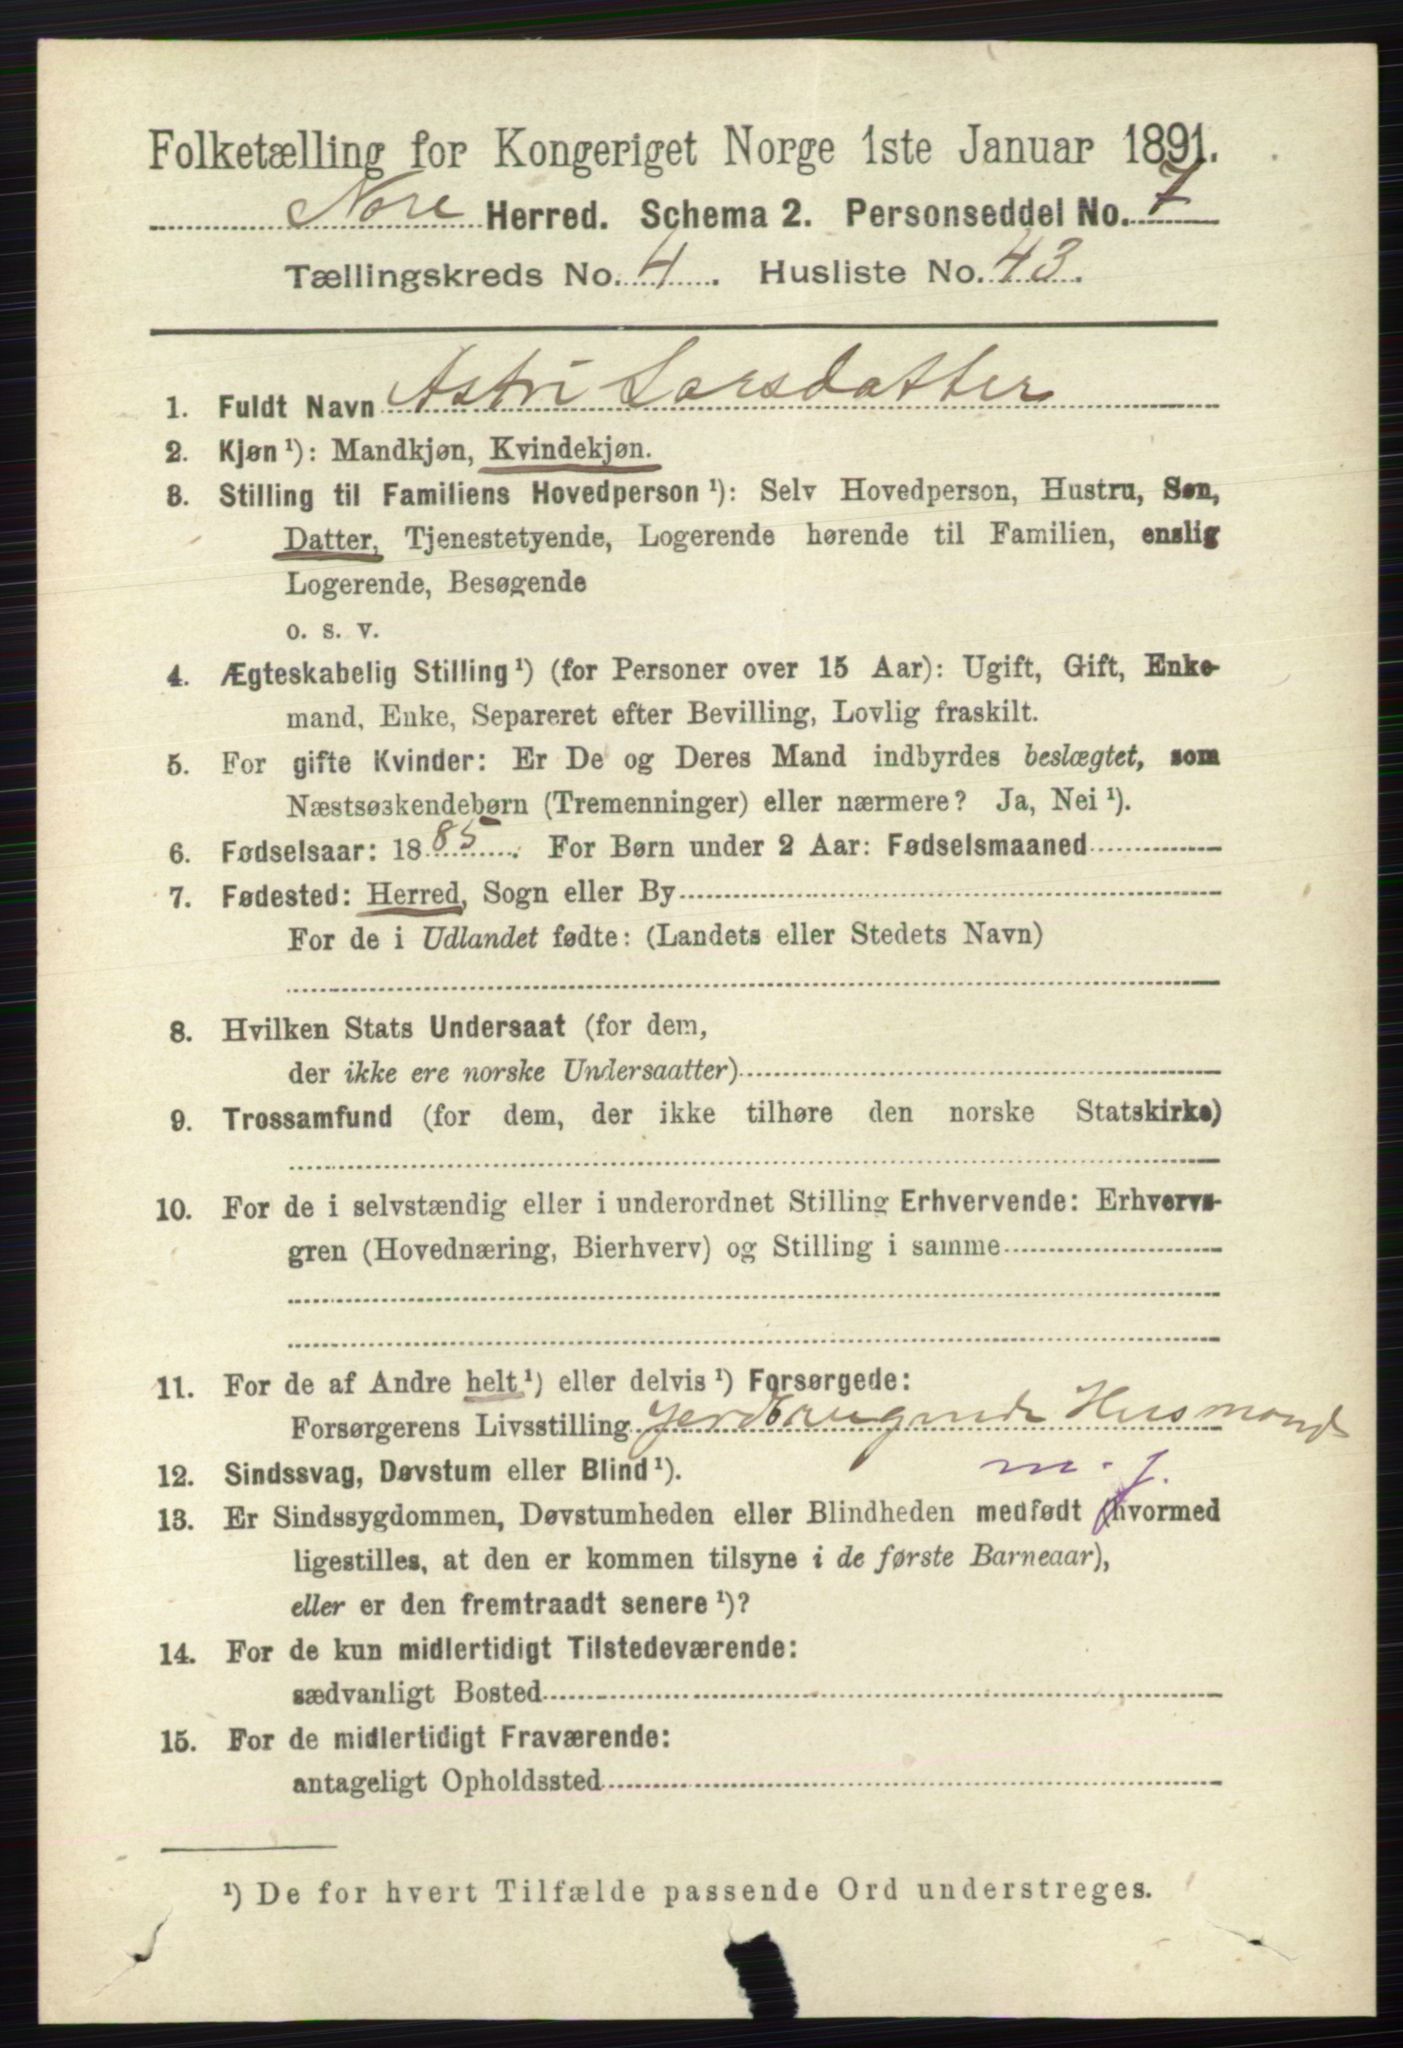 Folketælling for Kongeriget Norge 1ste Januar 1891.
Nore Herred. Schema 2. Personseddel No. 7
Tællingskreds No. 4. Husliste No. 43.
1. Fuldt Navn Astri Larsdatter
2. Kjøn ¹): Mandkjøn, Kvindekjøn.
3. Stilling til Familiens Hovedperson ¹): Selv Hovedperson, Hustru, Søn,
Datter, Tjenestetyende, Logerende hørende til Familien, enslig
Logerende, Besøgende
o. s. v.
4. Ægteskabelig Stilling ¹) (for Personer over 15 Aar): Ugift, Gift, Enke-
mand, Enke, Separeret efter Bevilling, Lovlig fraskilt.
5. For gifte Kvinder: Er De og Deres Mand indbyrdes beslægtet, som
Næstsøskendebørn (Tremenninger) eller nærmere? Ja, Nei ¹).
6. Fødselsaar: 1885. For Børn under 2 Aar: Fødselsmaaned
7. Fødested: Herred, Sogn eller By
For de i Udlandet fødte: (Landets eller Stedets Navn)
8. Hvilken Stats Undersaat (for dem,
der ikke ere norske Undersaatter)
9. Trossamfund (for dem, der ikke tilhøre den norske Statskirke)
10. For de i selvstændig eller i underordnet Stilling Erhvervende: Erhvervs-
gren (Hovednæring, Bierhverv) og Stilling i samme
11. For de af Andre helt ¹) eller delvis ¹) Forsørgede:
Forsørgerens Livsstilling Jordbrugende Husmand
12. Sindssvag, Døvstum eller Blind ¹). m. j.
13. Er Sindssygdommen, Døvstumheden eller Blindheden medfødt (hvormed
ligestilles, at den er kommen tilsyne i de første Barneaar),
eller er den fremtraadt senere ¹)?
14. For de kun midlertidigt Tilstedeværende:
sædvanligt Bosted
15. For de midlertidigt Fraværende:
antageligt Opholdssted
¹) De for hvert Tilfælde passende Ord understreges.